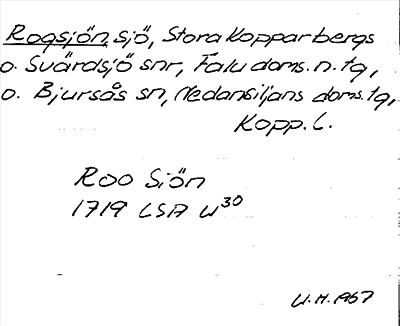 Rogsjön, sjö, Stora Kopparbergs
o. Svärdsjö snr, Falu doms. n. tg,
o. Bjursås sn, Nedansiljans doms. tg,
Kopp. l.
Roo Siön
1719 LSA W30
U.H. 1967